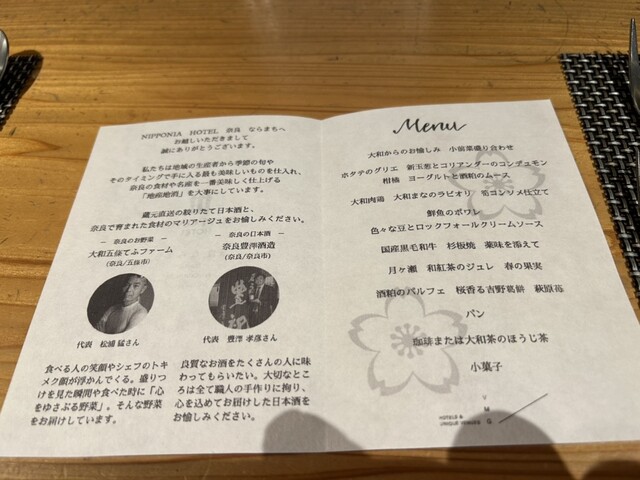 NIPPONIA HOTEL 奈良 ならまちへ
お越しいただきまして
誠にありがとうございます。
私たちは地域の生産者から季節の旬や
そのタイミングで手に入る最も美味しいものを仕入れ、
奈良の食材や名産を一番美味しく仕上げる
「地産地消」を大事にしています。
蔵元直送の絞りたて日本酒と、
奈良で育まれた食材のマリアージュをお愉しみください。
― 奈良のお野菜 ―
大和五條てふファーム
(奈良/五條市)
代表 松浦 猛さん
食べる人の笑顔やシェフのトキ
メク顔が浮かんでくる。盛りつ
けを見た瞬間や食べた時に「心
をゆさぶる野菜」。そんな野菜
をお届けしています。
― 奈良の日本酒 ―
奈良豊澤酒造
(奈良/奈良市)
代表 豊澤 孝彦さん
良質なお酒をたくさんの人に味
わってもらいたい。大切なとこ
ろは全て職人の手作りに拘り、
心を込めてお届けした日本酒を
お愉しみください。
Menu
大和からのお愉しみ 小前菜盛り合わせ
ホタテのグリエ 新玉葱とコリアンダーのコンデュモン
柑橘 ヨーグルトと酒粕のムース
大和肉鶏 大和まなのラビオリ 苞コンソメ仕立て
鮮魚のポワレ
色々な豆とロックフォールクリームソース
国産黒毛和牛 杉板焼 薬味を添えて
月ヶ瀬 和紅茶のジュレ 春の果実
酒粕のパルフェ 桜香る吉野葛餅 萩原苺
パン
珈琲または大和茶のほうじ茶
小菓子
HOTELS &
UNIQUE VENUES
V
M
G